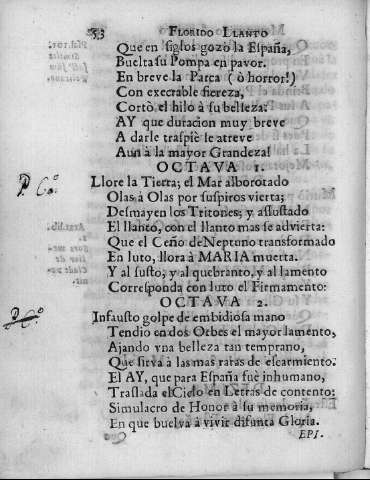 53 FLORIDO LLANTO
Que en siglos gozò la España,
Bueltasu Pompa en pavor.
En breve la Parca ( ò horror!)
Con execrable fiereza,
Cortò el hilo à su belleza:
AY que duracion muy breve
A darle traspiè se atreve
Aun à la mayor Grandeza!
OCTAVA 1.
Llore la Tierra; el Mar alborotado
P. Co.
Olas à Olas por suspiros vierta;
Desmayen los Tritones; y assustado
El llanto, con el llanto mas se advierta:
Que el Ceño deNeptuno transformado
En luto, llora à MARIA muerta.
Y al susto, y al quebranto, y al lamento
Corresponda con luto el Firmamento:
OCTAVA 2.
P. Co.
Infausto golpe de embidiosa mano
Tendio en dos Orbes el mayor lamento,
Ajando vna belleza tan temprano,
Que sirva à las mas raras de escarmiento.
El AY, que para España fuè inhumano,
Traslada elCielo en Letras de contento:
Simulacro de Honor à su memoria,
En que buelva à vivir difunta Gloria.
EPI.